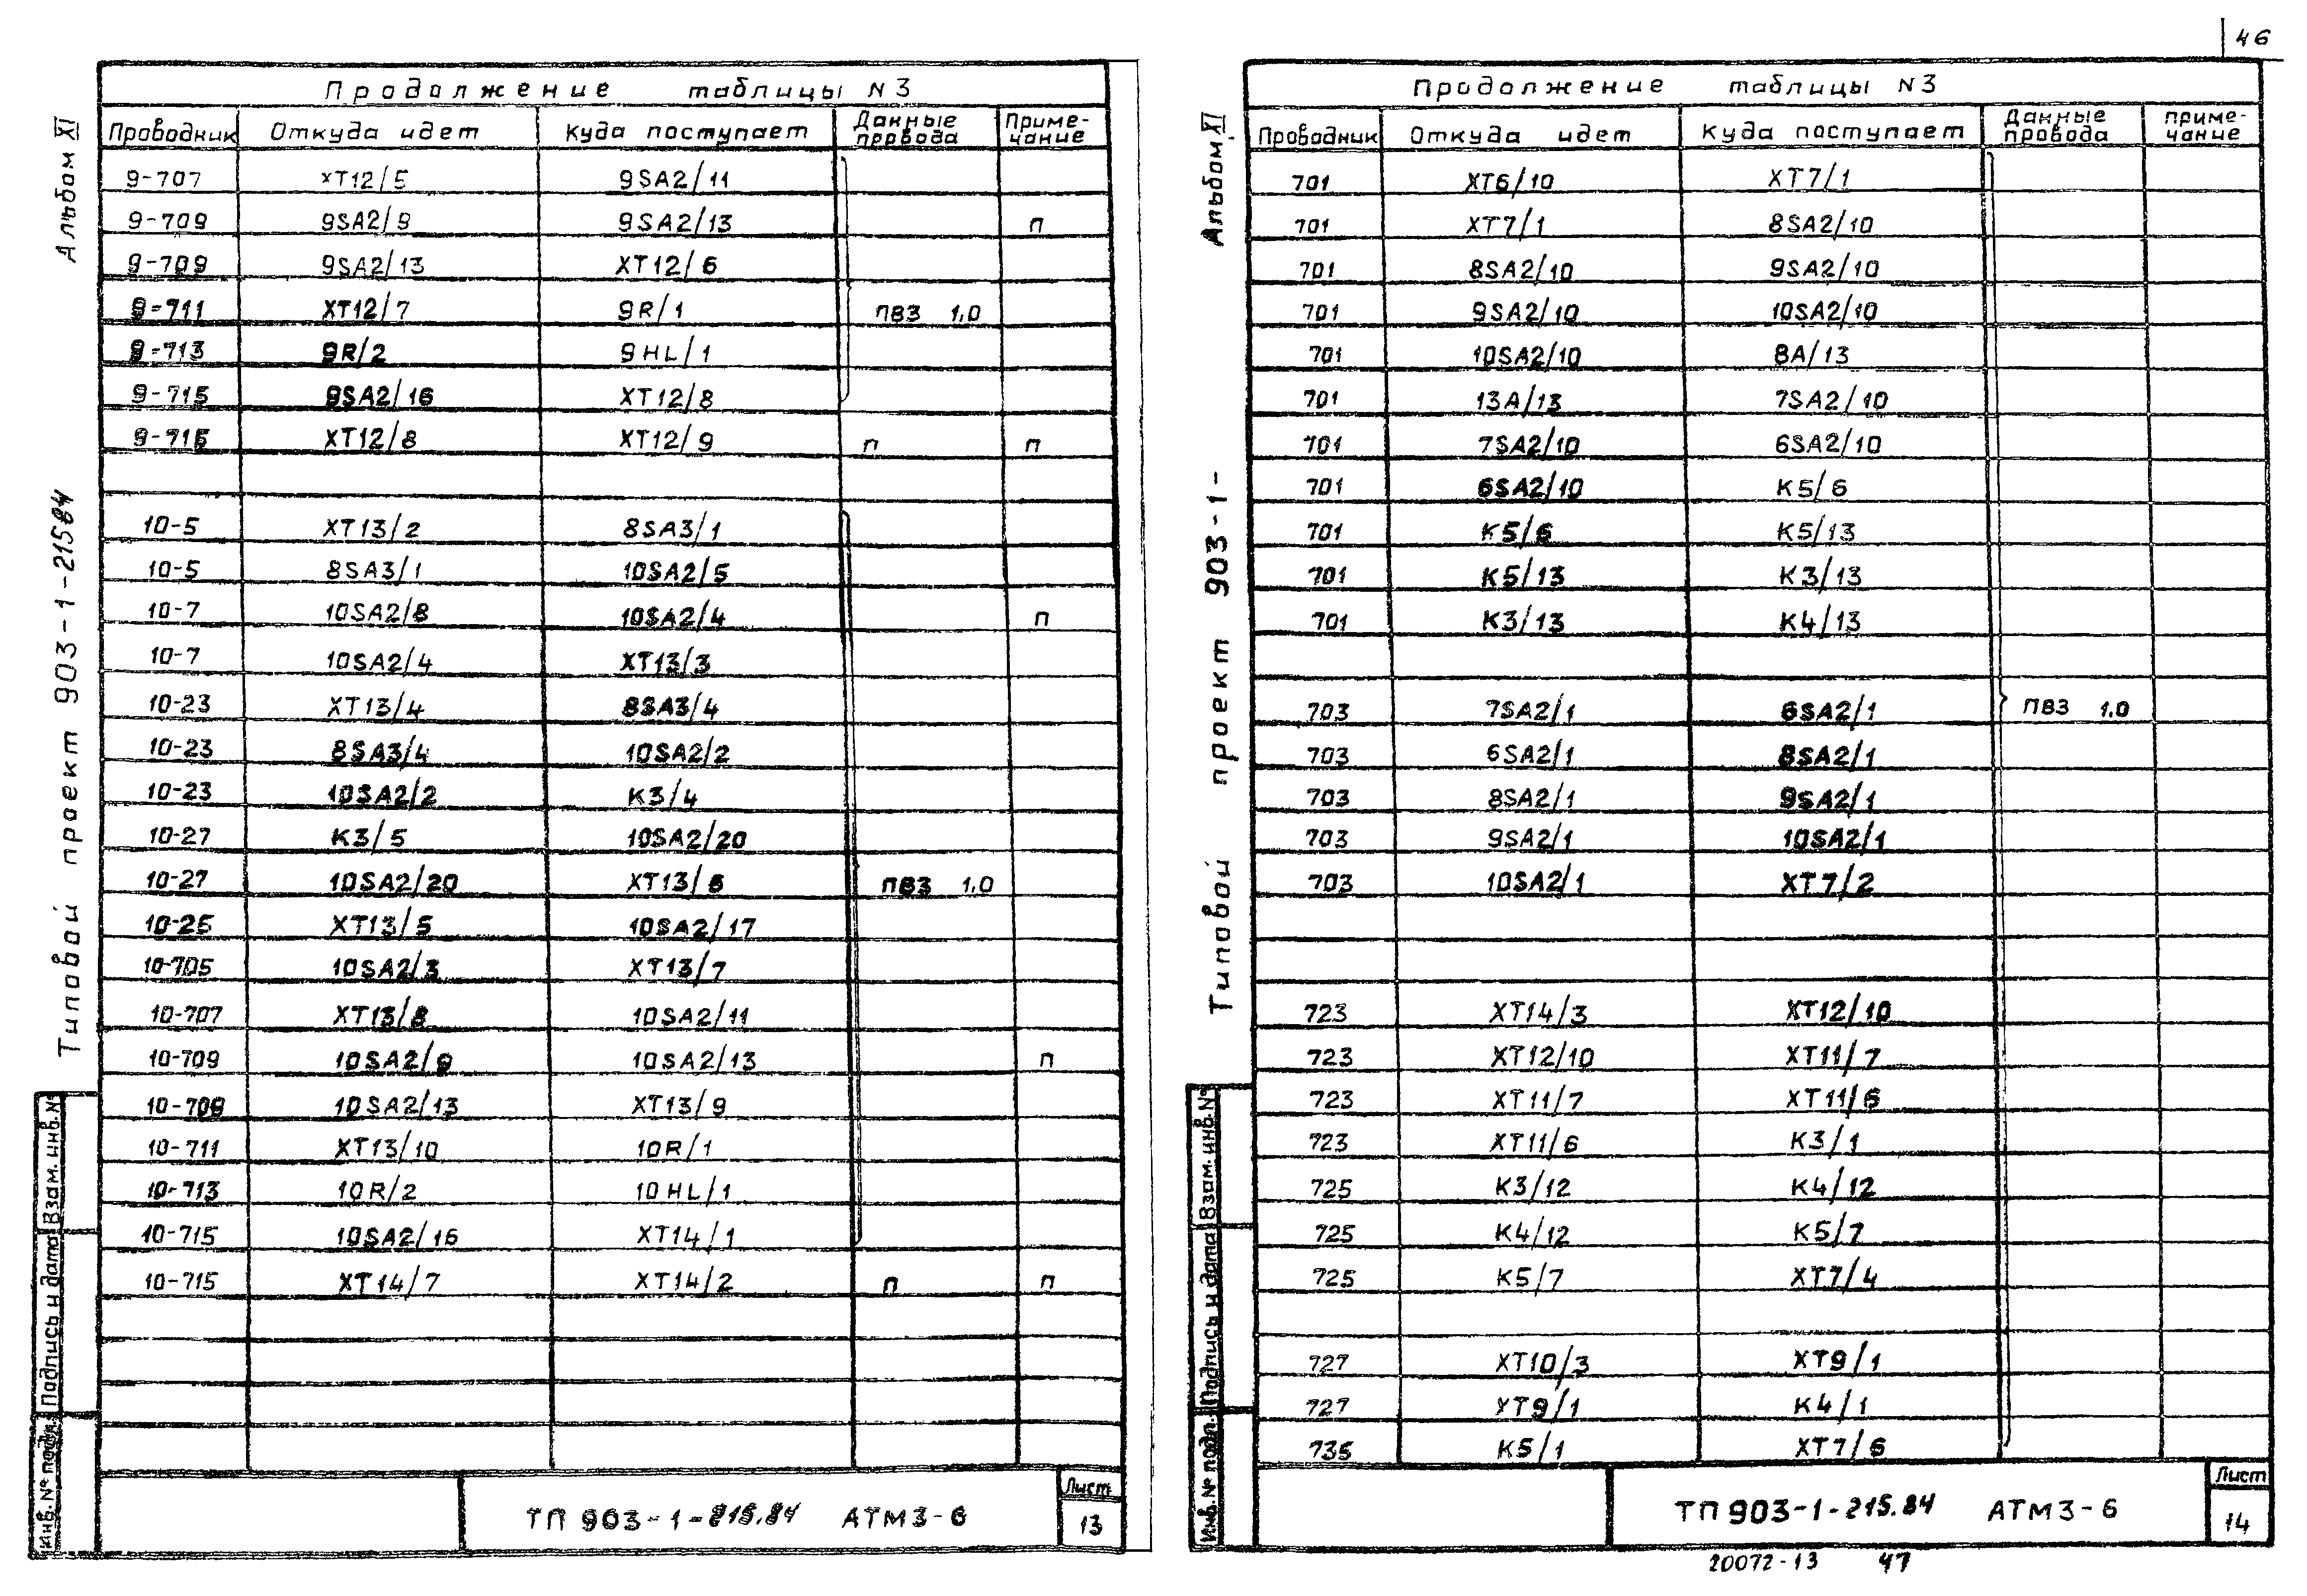 46
Продолжение таблицы N3
Проводник Откуда идет Куда поступает Данные провода Примечание
9-707 XT12/5 9SA2/11
9-709 9SA2/9 9SA2/13 п
9-709 9SA2/13 XT12/6
9-711 XT12/7 9R/1 ПВ3 1,0
9-713 9R/2 9HL/1
9-715 9SA2/16 XT12/8
9-715 XT12/8 XT12/9 п п
10-5 XT13/2 8SA3/1
10-5 8SA3/1 10SA2/5
10-7 10SA2/8 10SA2/4 п
10-7 10SA2/4 XT13/3
10-23 XT13/4 8SA3/4
10-23 8SA3/4 10SA2/2
10-23 10SA2/2 K3/4
10-27 K3/5 10SA2/20
10-27 10SA2/20 XT13/6 ПВ3 1,0
10-25 XT13/5 10SA2/17
10-705 10SA2/3 XT13/7
10-707 XT13/8 10SA2/11
10-709 10SA2/9 10SA2/13 п
10-709 10SA2/13 XT13/9
10-711 XT13/10 10R/1
10-713 10R/2 10HL/1
10-715 10SA2/16 XT14/1
10-715 XT14/7 XT14/2 п п
ТП 903-1-215.84 АТМ3-6
Лист
13
Альбом XI
Типовой проект 903-1-215 84
Взам. инв. №
Подпись и дата
Инв. № подл.
Продолжение таблицы N3
Проводник Откуда идет Куда поступает Данные провода Примечание
701 XT6/10 XT7/1
701 XT7/1 8SA2/10
701 8SA2/10 9SA2/10
701 9SA2/10 10SA2/10
701 10SA2/10 8A/13
701 13A/13 7SA2/10
701 7SA2/10 6SA2/10
701 6SA2/10 K5/6
701 K5/6 K5/13
701 K5/13 K3/13
701 K3/13 K4/13
703 7SA2/1 6SA2/1 ПВ3 1,0
703 6SA2/1 8SA2/1
703 8SA2/1 9SA2/1
703 9SA2/1 10SA2/1
703 10SA2/1 XT7/2
723 XT14/3 XT12/10
723 XT12/10 XT11/7
723 XT11/7 XT11/6
723 XT11/6 K3/1
725 K3/12 K4/12
725 K4/12 K5/7
725 K5/7 XT7/4
727 XT10/3 XT9/1
727 XT9/1 K4/1
735 K5/1 XT7/6
ТП 903-1-215.84 АТМ3-6
Лист
14
Альбом XI
Типовой проект 903-1-
Взам. инв. №
Подпись и дата
Инв. № подл.
20072-13 47